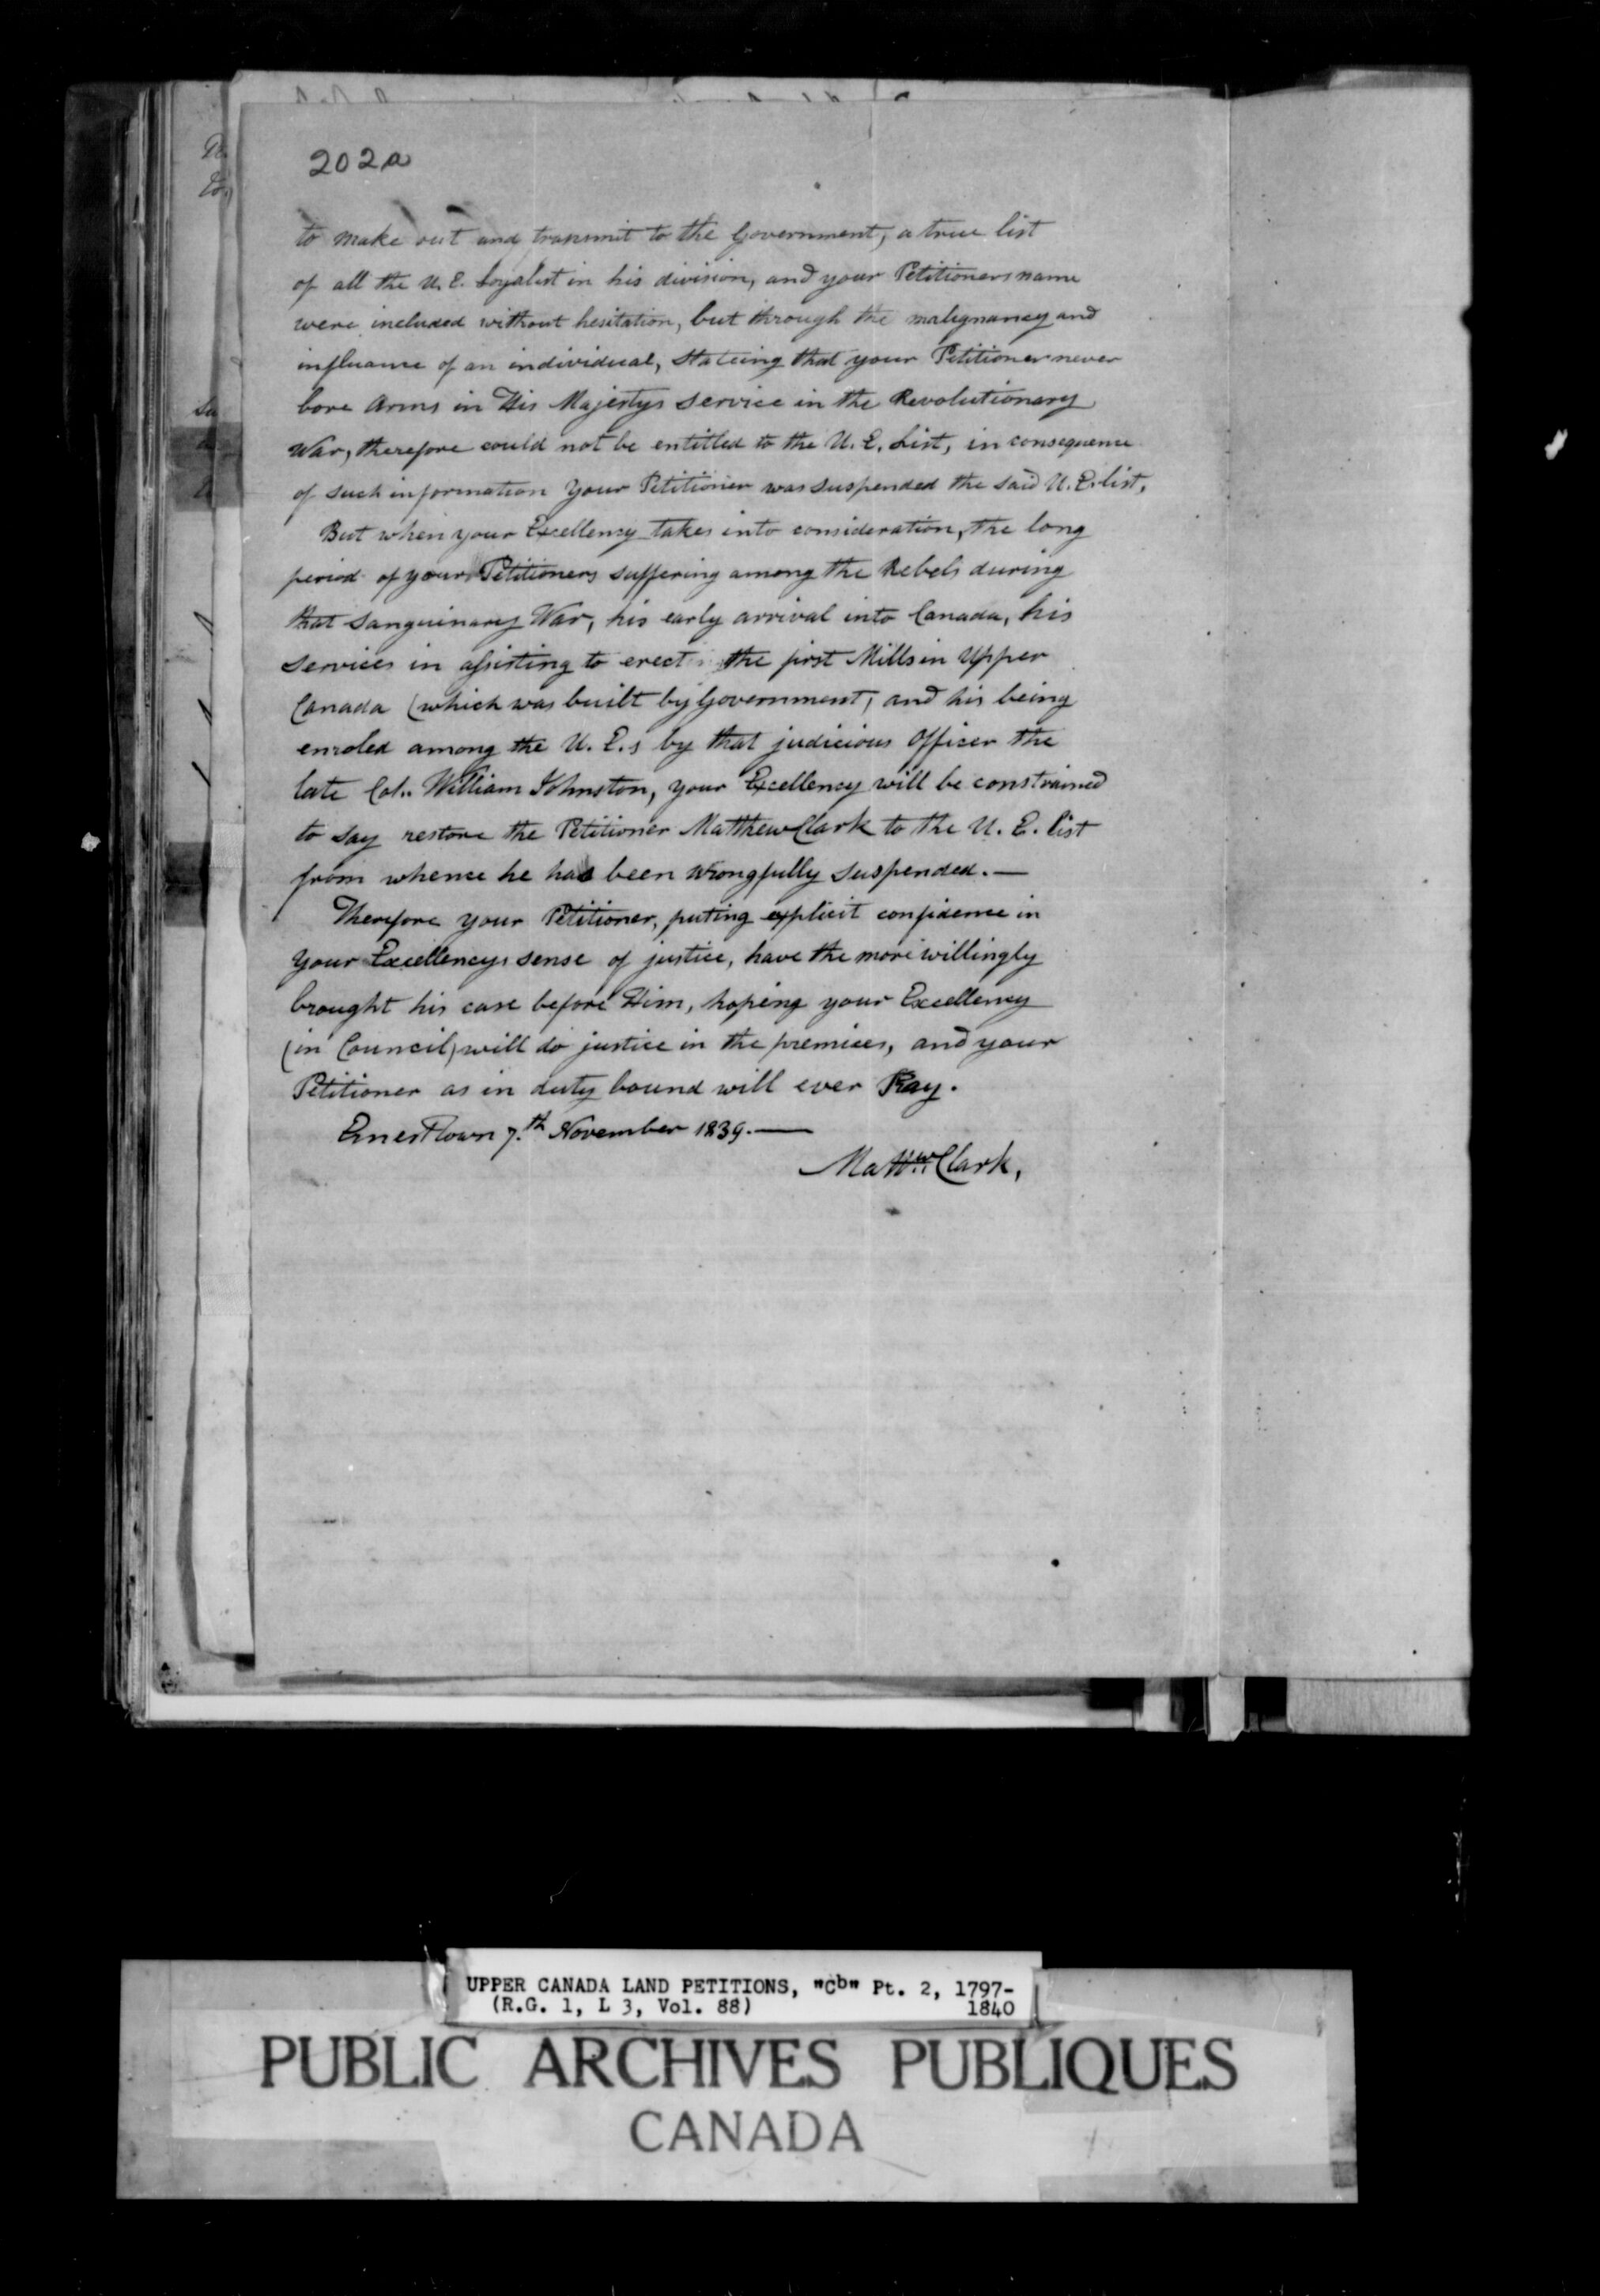 202a
to make out and transmit to the Government, a true list
of all the U. E. Loyalist in his division, and your Petitioners name
were included without hesitation, but through the malignancy and
influance of an individual, stateing that your Petitioner never
bore Arms in His Majestys Service in the Revolutionary
War, therefore could not be entitled to the U. E. List, in consequence
of such information your Petitioner was suspended the said U. E. list,
But when your Excellency takes into consideration, the long
period of your Petitioners suffering among the Rebels during
that Sanguinary War, his early arrival into Canada, his
services in assisting to erect the first Mills in Upper
Canada (which was built by Government) and his being
enroled among the U. E.s by that judicious Officer the
late Col. William Johnston, your Excellency will be constrained
to say restore the Petitioner Matthew Clark to the U. E. list
from whence he has been wrongfully suspended. —
Therefore your Petitioner, puting explicit confidence in
your Excellencys sense of justice, have the more willingly
brought his case before Him, hoping your Excellency
(in Council) will do justice in the premises, and your
Petitioner as in duty bound will ever Pray.
Ernestown 7.th November 1839. —
Mattw. Clark,
UPPER CANADA LAND PETITIONS, "Cb" Pt. 2, 1797-
(R.G. 1, L 3, Vol. 88) 1840
PUBLIC ARCHIVES PUBLIQUES
CANADA